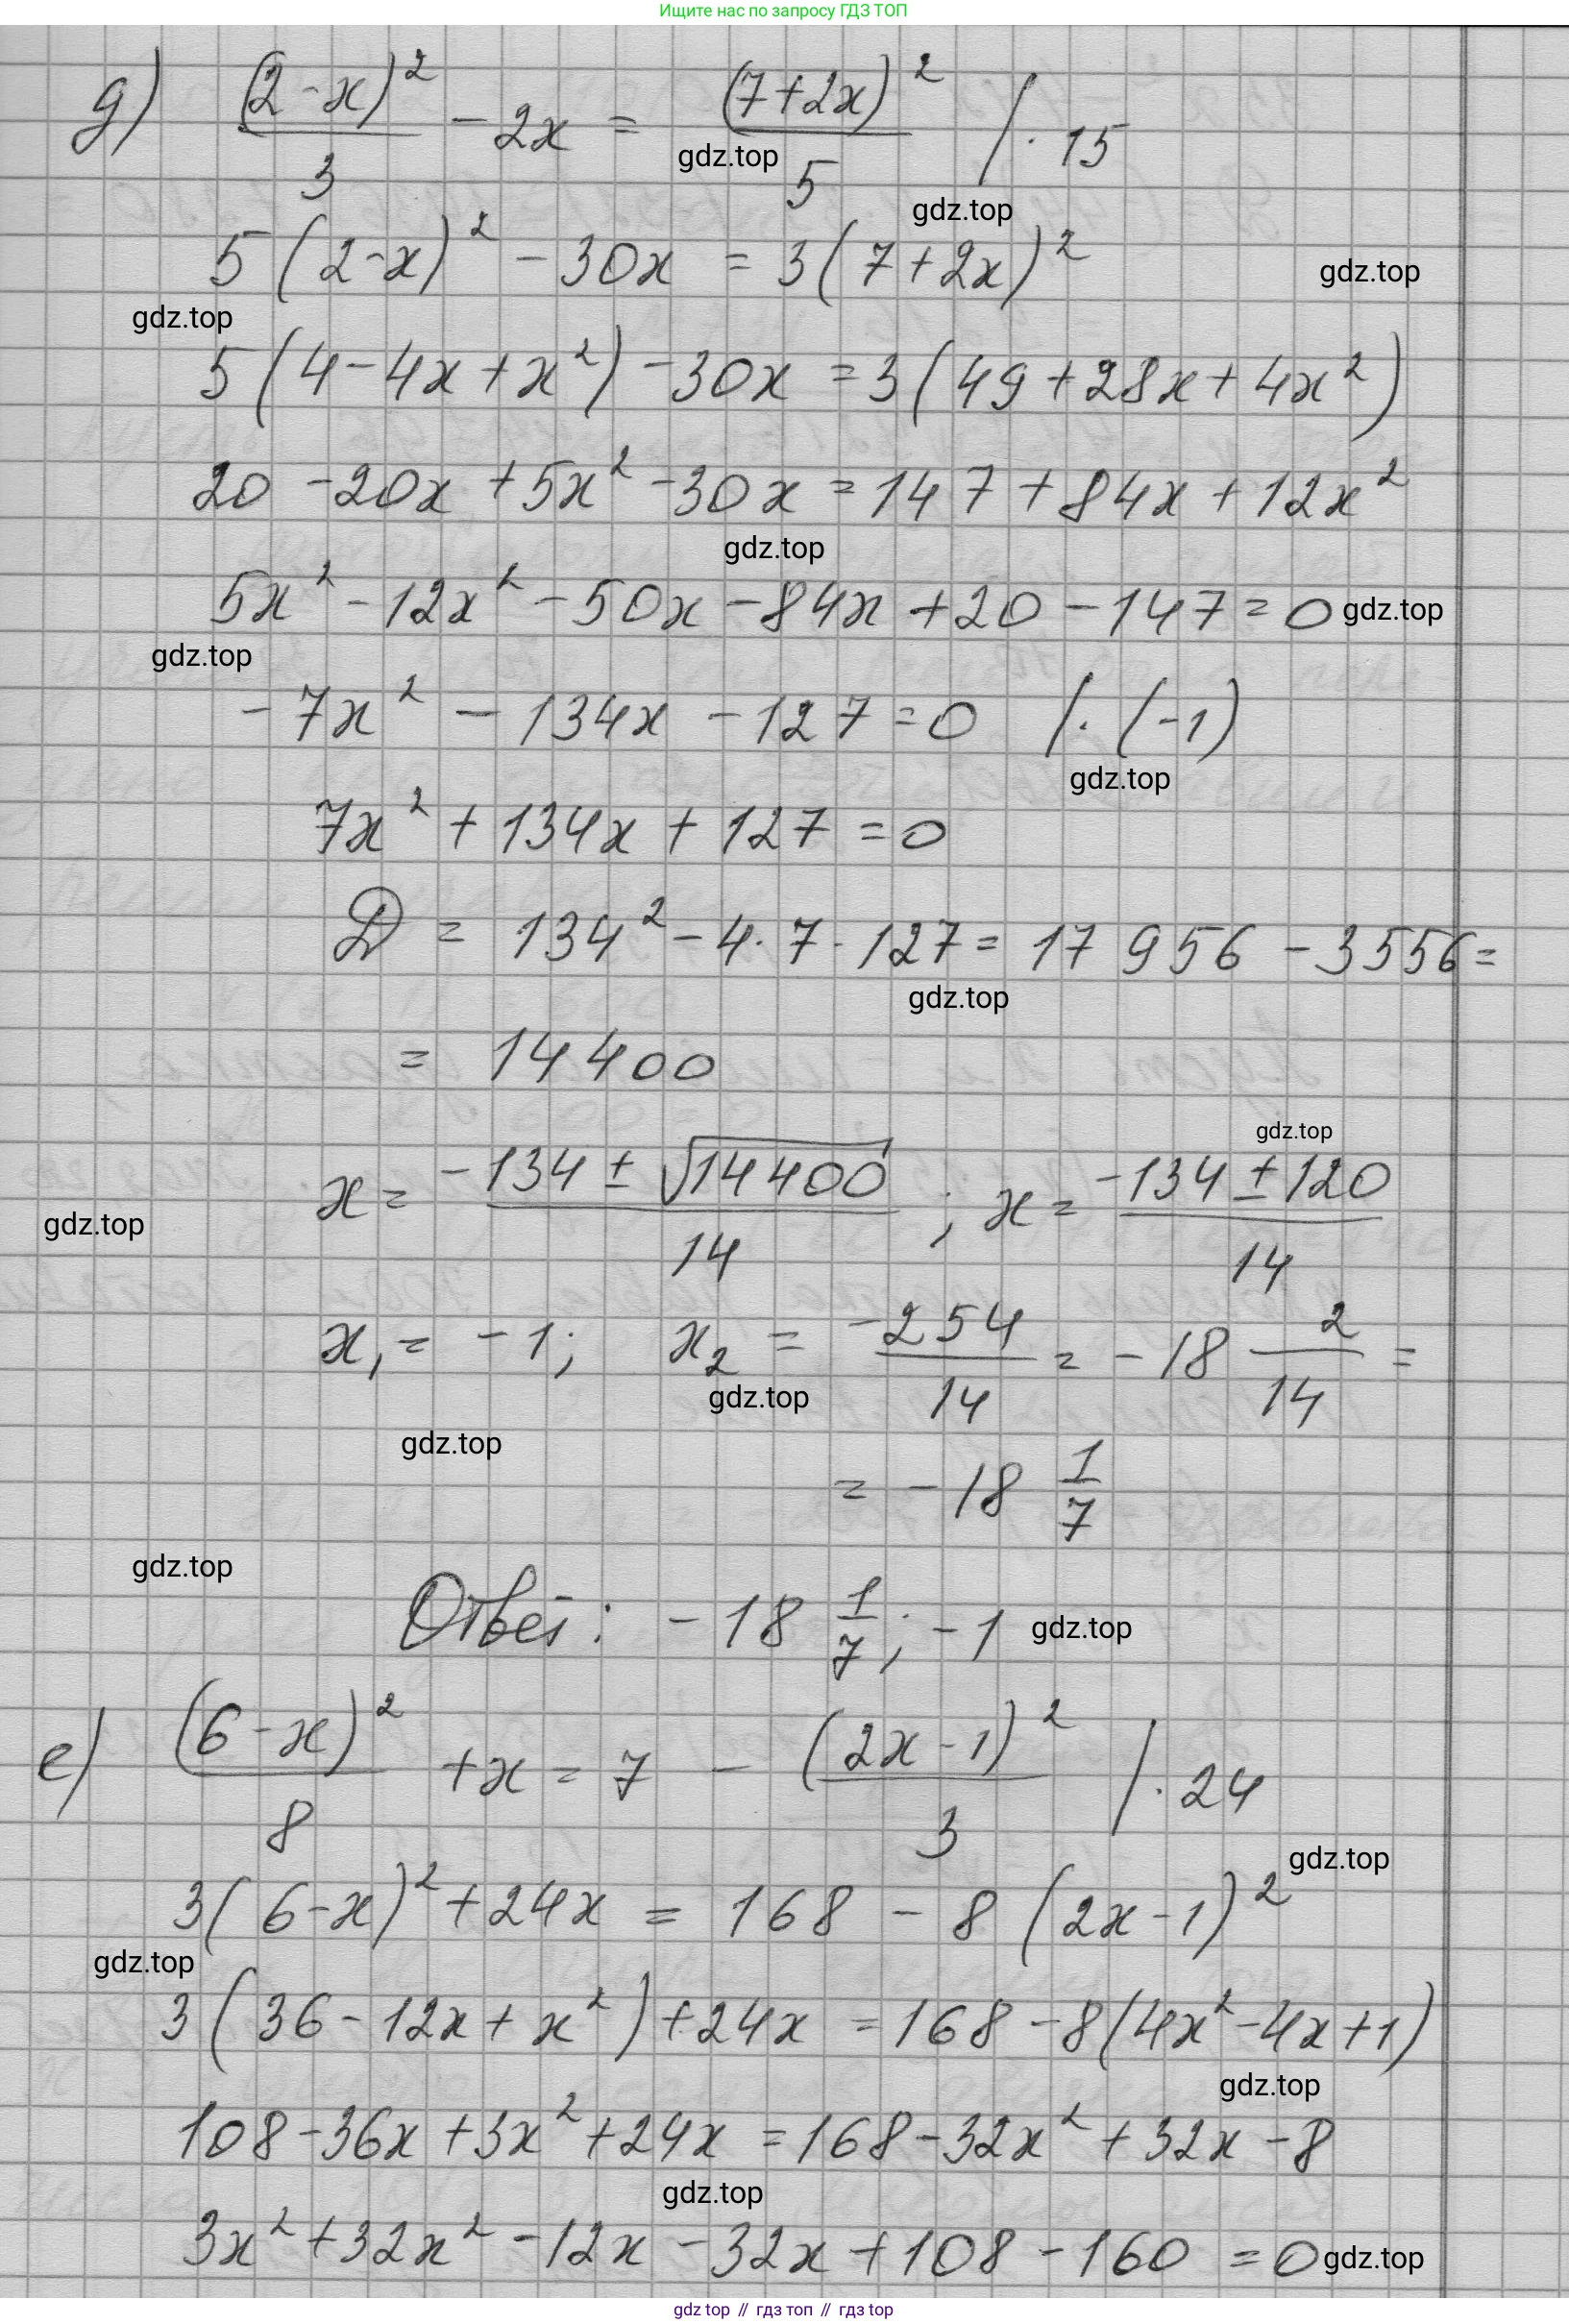 Ищите нас по запросу ГДЗ ТОП
д) (2-x)²/3 - 2x = (7+2x)²/5 /· 15
gdz.top
gdz.top
5(2-x)² - 30x = 3(7+2x)²
gdz.top
gdz.top
5(4-4x+x²) - 30x = 3(49+28x+4x²)
20 - 20x + 5x² - 30x = 147 + 84x + 12x²
gdz.top
5x² - 12x² - 50x - 84x + 20 - 147 = 0 gdz.top
gdz.top
-7x² - 134x - 127 = 0 /· (-1)
gdz.top
7x² + 134x + 127 = 0
D = 134² - 4· 7 · 127 = 17 956 - 3556 =
gdz.top
= 14 400
gdz.top
x = -134 ± √14 400/14 ; x = -134 ± 120/14
gdz.top
x₁ = -1; x₂ = -254/14 = -18 2/14 =
gdz.top
gdz.top
= -18 1/7
gdz.top
Ответ: -18 1/7; -1 gdz.top
е) (6-x)²/8 + x = 7 - (2x-1)²/3 /· 24
gdz.top
3(6-x)² + 24x = 168 - 8(2x-1)²
gdz.top
3(36-12x+x²) + 24x = 168 - 8(4x²-4x+1)
gdz.top
108 - 36x + 3x² + 24x = 168 - 32x² + 32x - 8
gdz.top
3x² + 32x² - 12x - 32x + 108 - 160 = 0 gdz.top
gdz top // гдз топ // гдз top